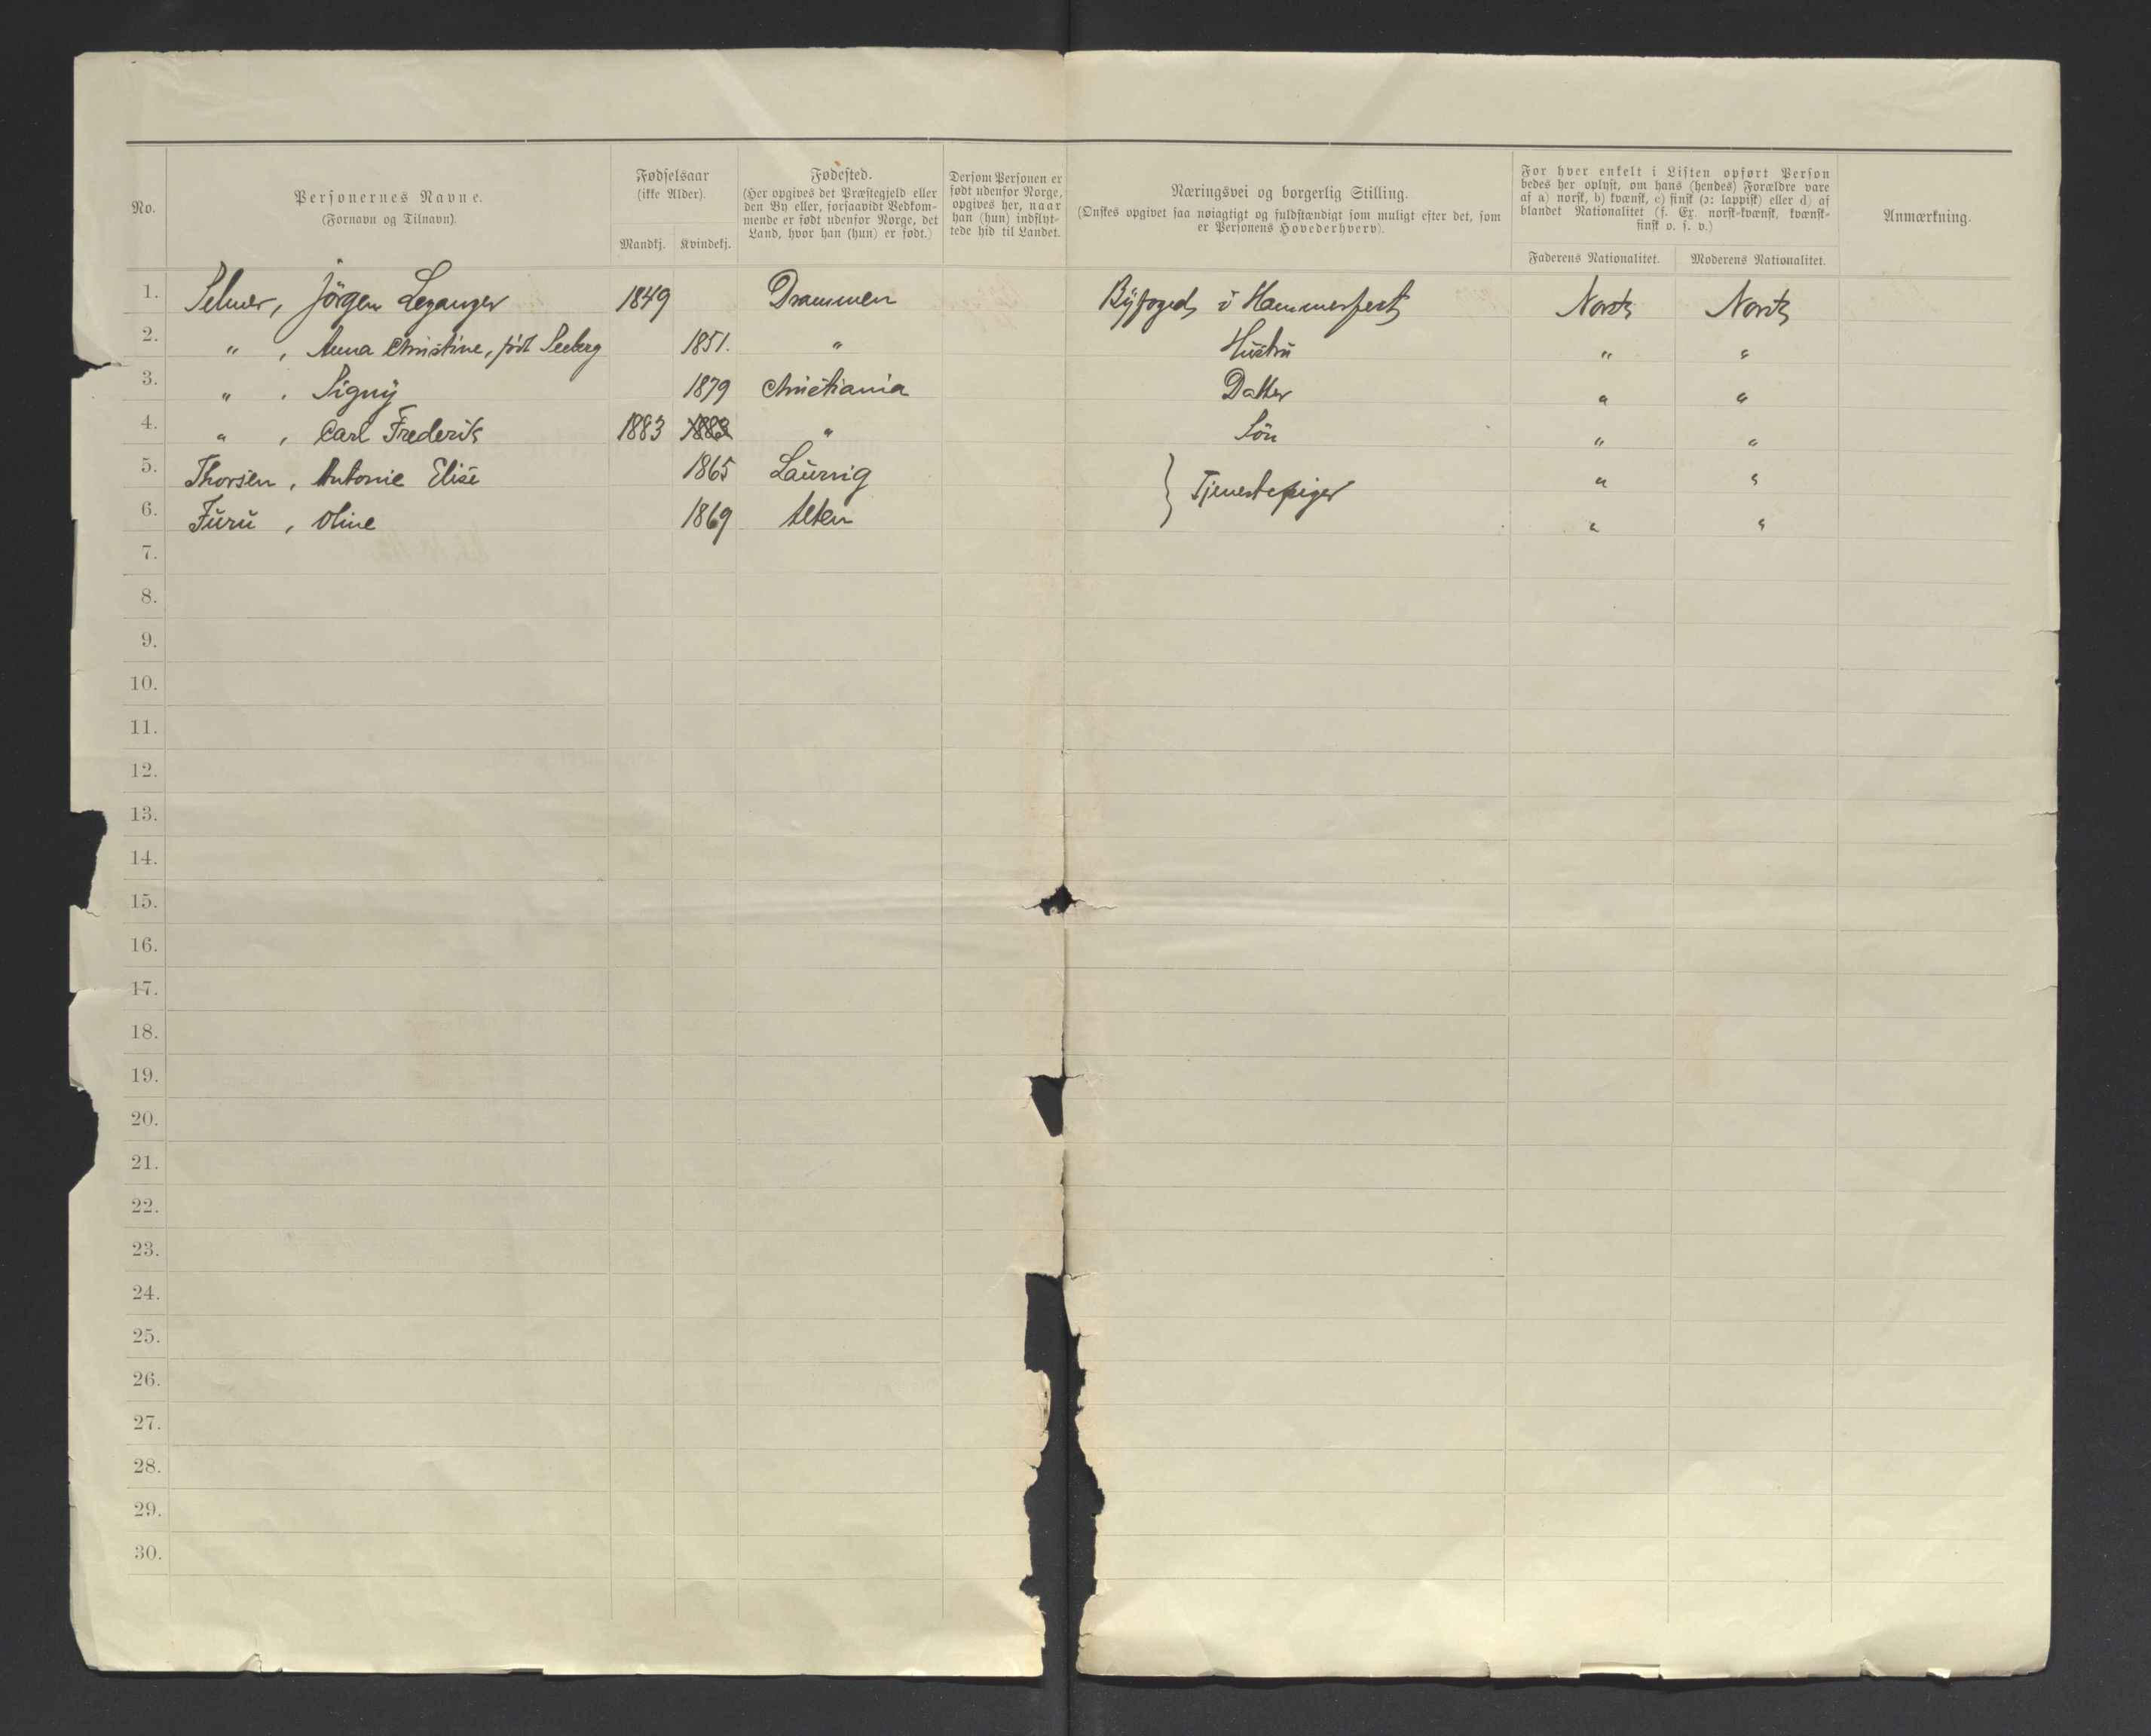 No.
Personernes Navne.
(Fornavn og Tilnavn).
Fødselsaar
(ikke Alder).
Mandkj. Kvindekj.
Fødested.
(Her opgives det Præstegjeld eller
den By eller, forsaavidt Vedkom-
mende er født udenfor Norge, det
Land, hvor han (hun) er født.)
Dersom Personen er
født udenfor Norge,
opgives her, naar
han (hun) indflyt-
tede hid til Landet.
Næringsvei og borgerlig Stilling.
(Ønskes opgivet saa nøiagtigt og fuldstændigt som muligt efter det, som
er Personens Hovederhverv).
For hver enkelt i Listen opført Person
bedes her oplyst, om hans (hendes) Forældre vare
af a) norsk, b) kvænsk, c) finsk (ɔ: lappisk) eller d) af
blandet Nationalitet (f. Ex. norsk-kvænsk, kvænsk-
finsk o. s. v.)
Faderens Nationalitet. Moderens Nationalitet.
Anmærkning.
1. Selmer, Jörgen Leganger 1849 Drammen Byfoged i Hammerfest Norsk Norsk
2. " , Anna Christine, født Seeberg 1851. " Hustru " "
3. " , Signy 1879 Christiania Datter " "
4. " , Carl Frederik 1883 1883 " Sön " "
5. Thorsen, Antonie Elise 1865 Laurvig } Tjenestepiger " "
6. Furu, Oline 1869 Alten " "
7.
8.
9.
10.
11.
12.
13.
14.
15.
16.
17.
18.
19.
20.
21.
22.
23.
24.
25.
26.
27.
28.
29.
30.